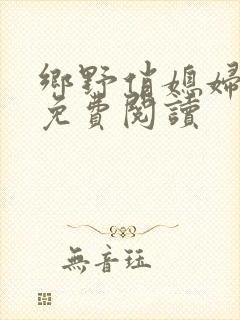 鄉野俏媳婦
免費閱讀
無音珏